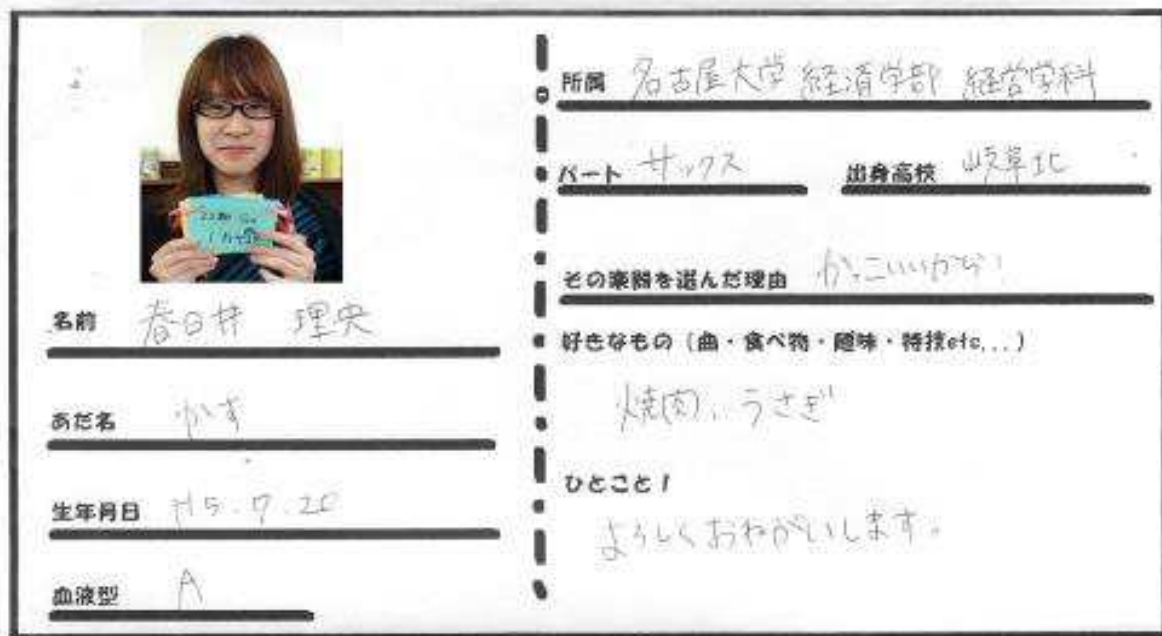 名前 春日井 理央
あだ名 かす
生年月日 H5.7.20
血液型 A
所属 名古屋大学 経済学部 経営学科
パート サックス 出身高校 岐阜北
その楽器を選んだ理由 かっこいいから!
好きなもの(曲・食べ物・趣味・特技etc...)
焼肉、うさぎ
ひとこと!
よろしくおねがいします。